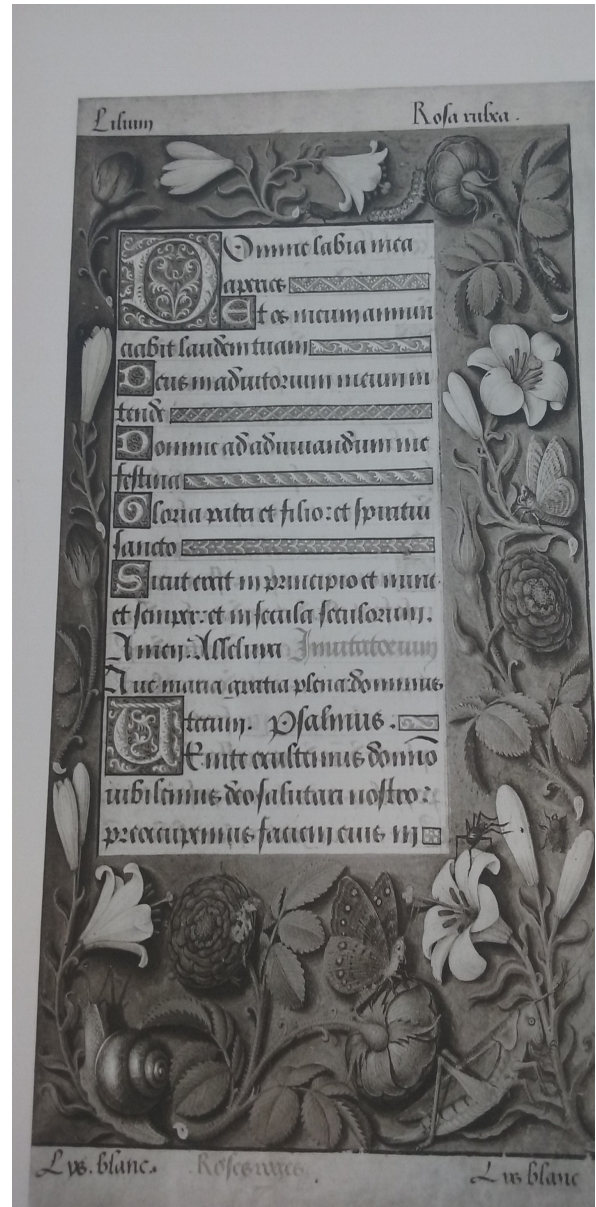 Lilium
Rosa rubea.
Domine labia mea
aperies
Et os meum annun
ciabit laudem tuam
Deus in adiutorium meum in
tende
Domine ad adiuuandum me
festina
Gloria patri et filio: et spiritui
sancto
Sicut erat in principio et nunc
et semper: et in secula seculorum.
Amen. Alleluia Inuitatorium
Aue maria gratia plena: dominus
tecum. Psalmus.
Venite exultemus domino
iubilemus deo salutari nostro:
preoccupemus faciem eius in
Lys. blanc.
Lys blanc